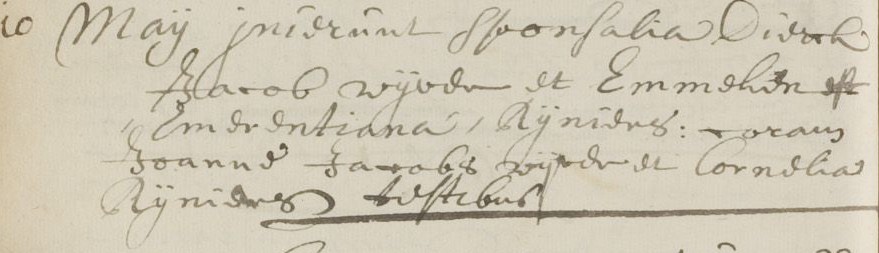 10 Maÿ inierunt sponsalia Dierck
Jacob wÿver et Emmeken est
, Emerentiana, Rÿniers: coram
Joanne Jacobs wÿver et Cornelia
Rÿniers testibus